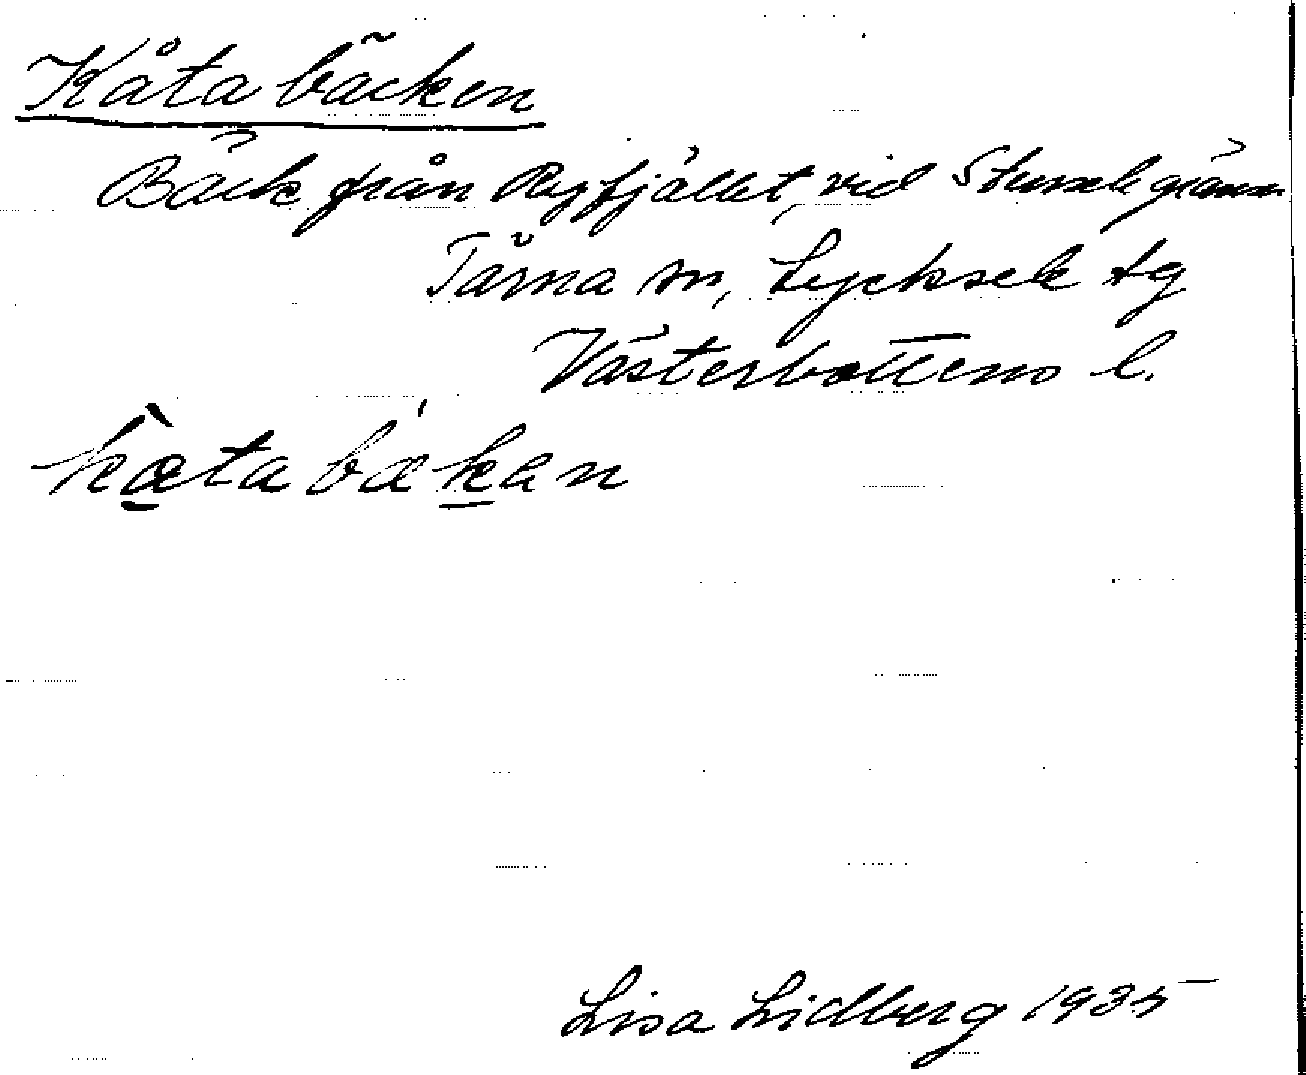 Kåtabäcken
Bäck från Ryfjället, vid Stensele gräns
Tärna sn, Lycksele tg
Västerbottens l.
kàtabækan
Lisa Lidberg 1935